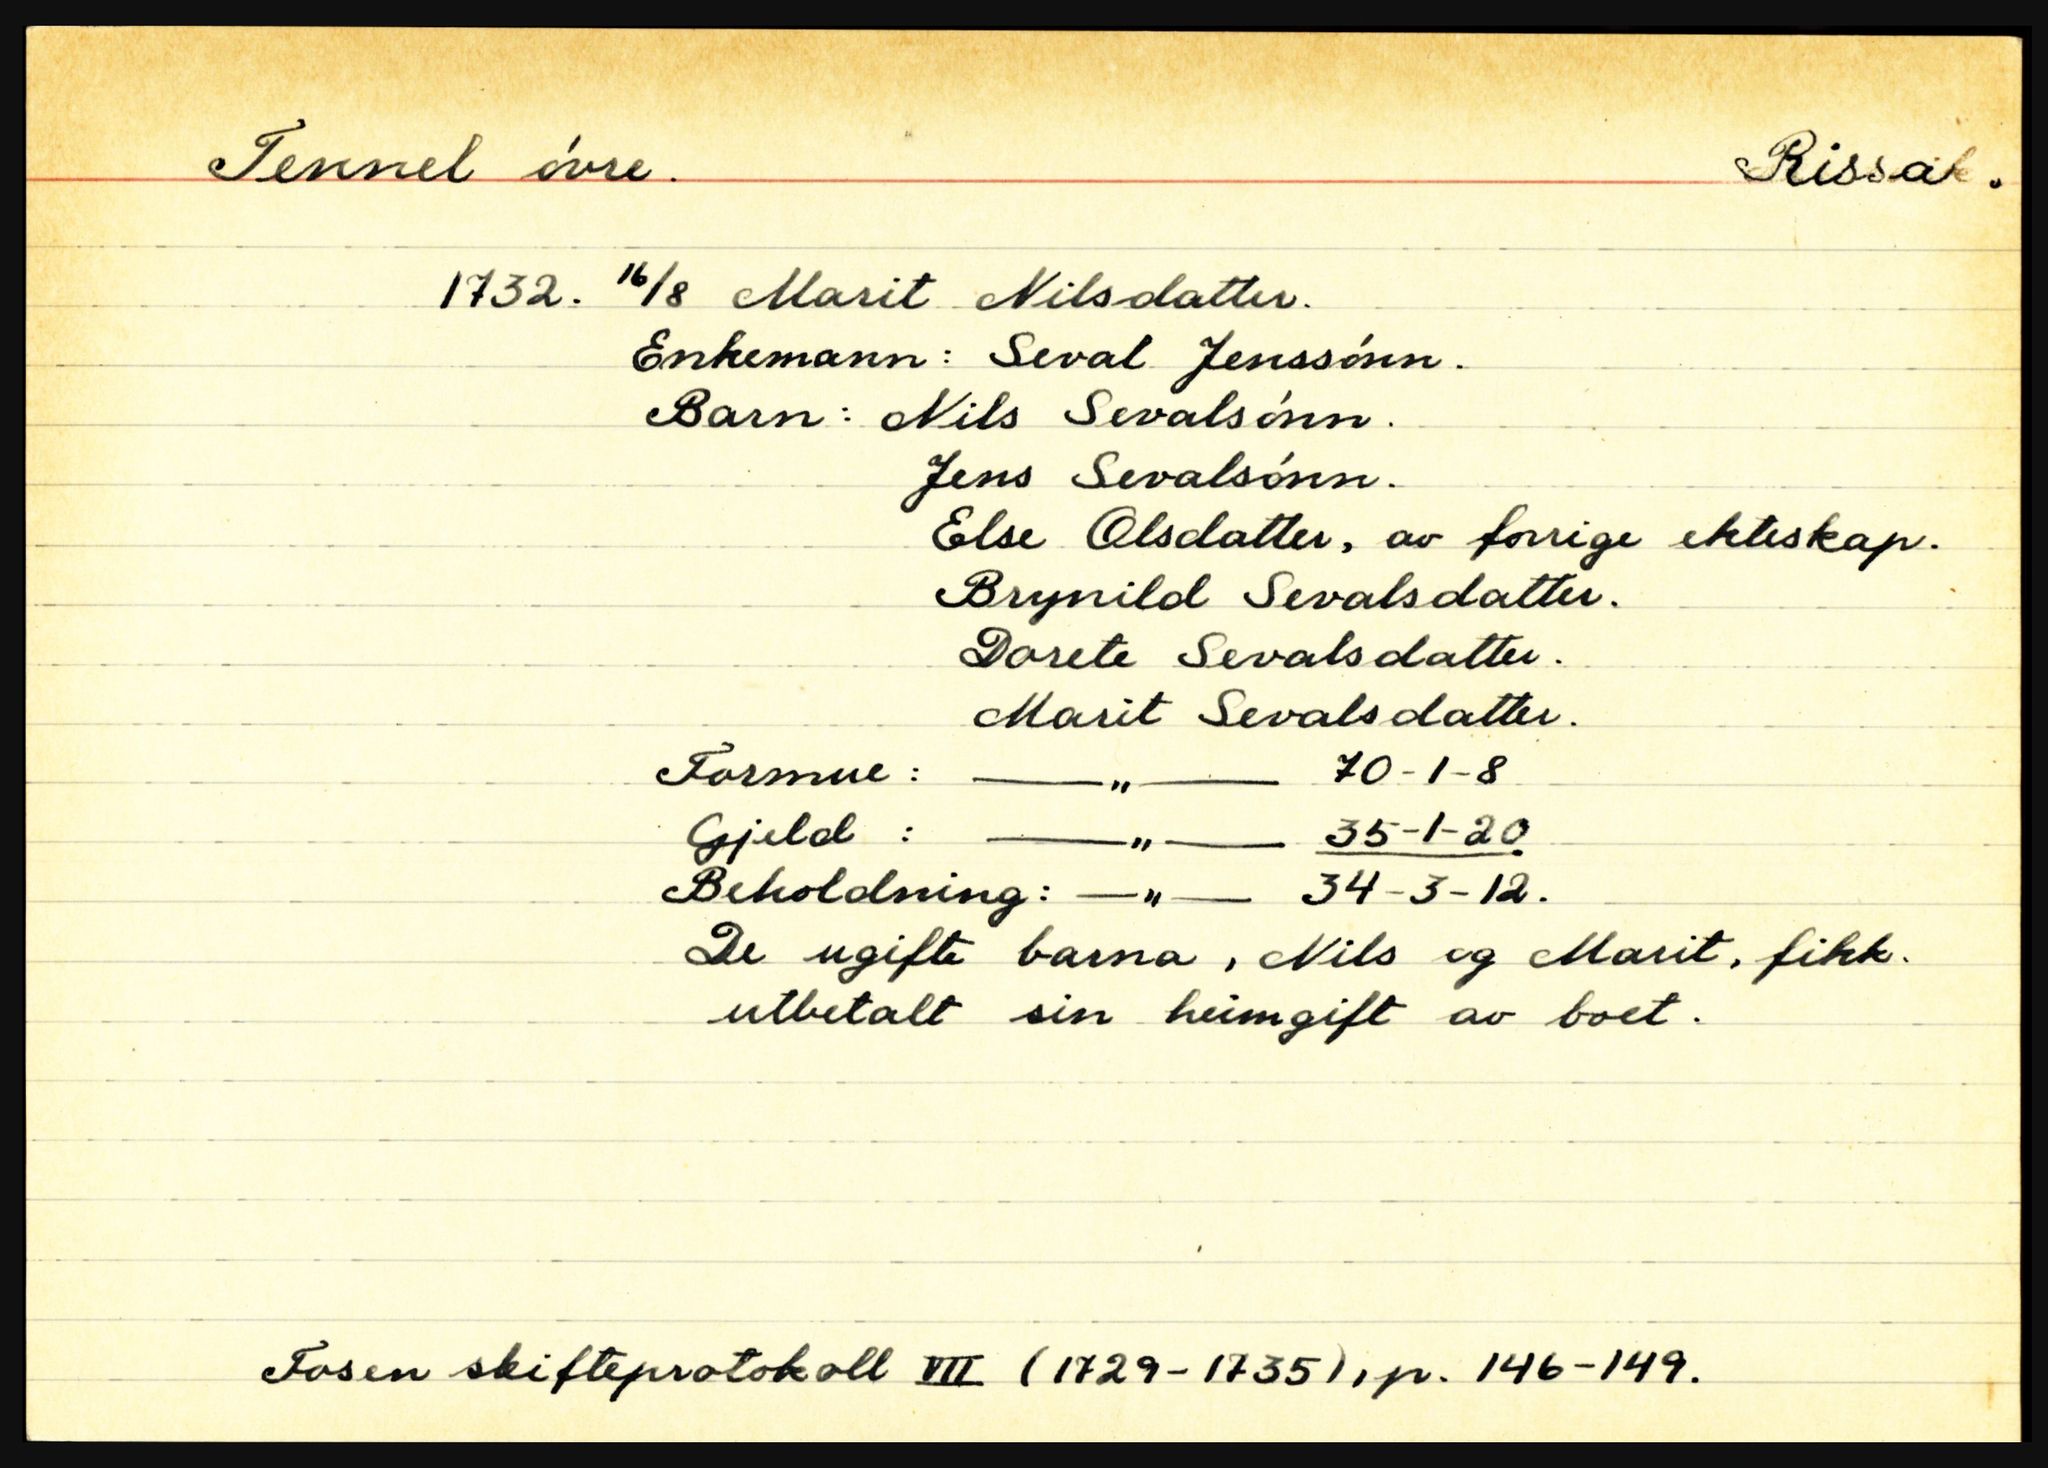 Tennel övre. Rissa.
1732. 16/8 Marit Nilsdatter.
Enkemann: Seval Jenssónn.
Barn: Nils Sevalsónn.
Jens Sevalsónn.
Else Olsdatter, av forrige ekteskap.
Brynild Sevalsdatter.
Dorete Sevalsdatter.
Marit Sevalsdatter.
Formue: —„— 70-1-8
Gjeld : —„— 35-1-20
Beholdning: —„— 34-3-12.
De ugifte barna, Nils og Marit, fikk.
utbetalt sin heimgift av boet.
Fosen skifteprotokoll VII (1729-1735), p. 146-149.